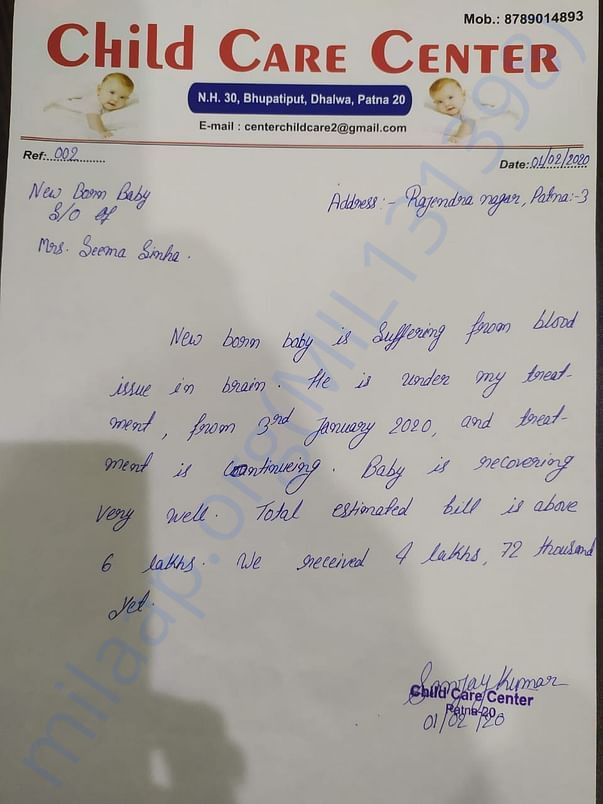 Mob.: 8789014893
Child Care Center
N.H. 30, Bhupatiput, Dhalwa, Patna 20
E-mail : centerchildcare2@gmail.com
Ref: 002 Date: 01/02/2020
New Born Baby Address:- Rajendra nagar, Patna:-3
S/O of
Mrs. Seema Sinha.
New born baby is Suffering from blood
issue in brain. He is under my treat-
ment, from 3rd January 2020, and treat-
ment is continueing. Baby is recovering
very well. Total estimated bill is above
6 lakhs. We received 4 lakhs, 72 thousand
yet.
Sanjay Kumar
Child Care Center
Patna-20
01/02/20
milaap.org(MIL131398)